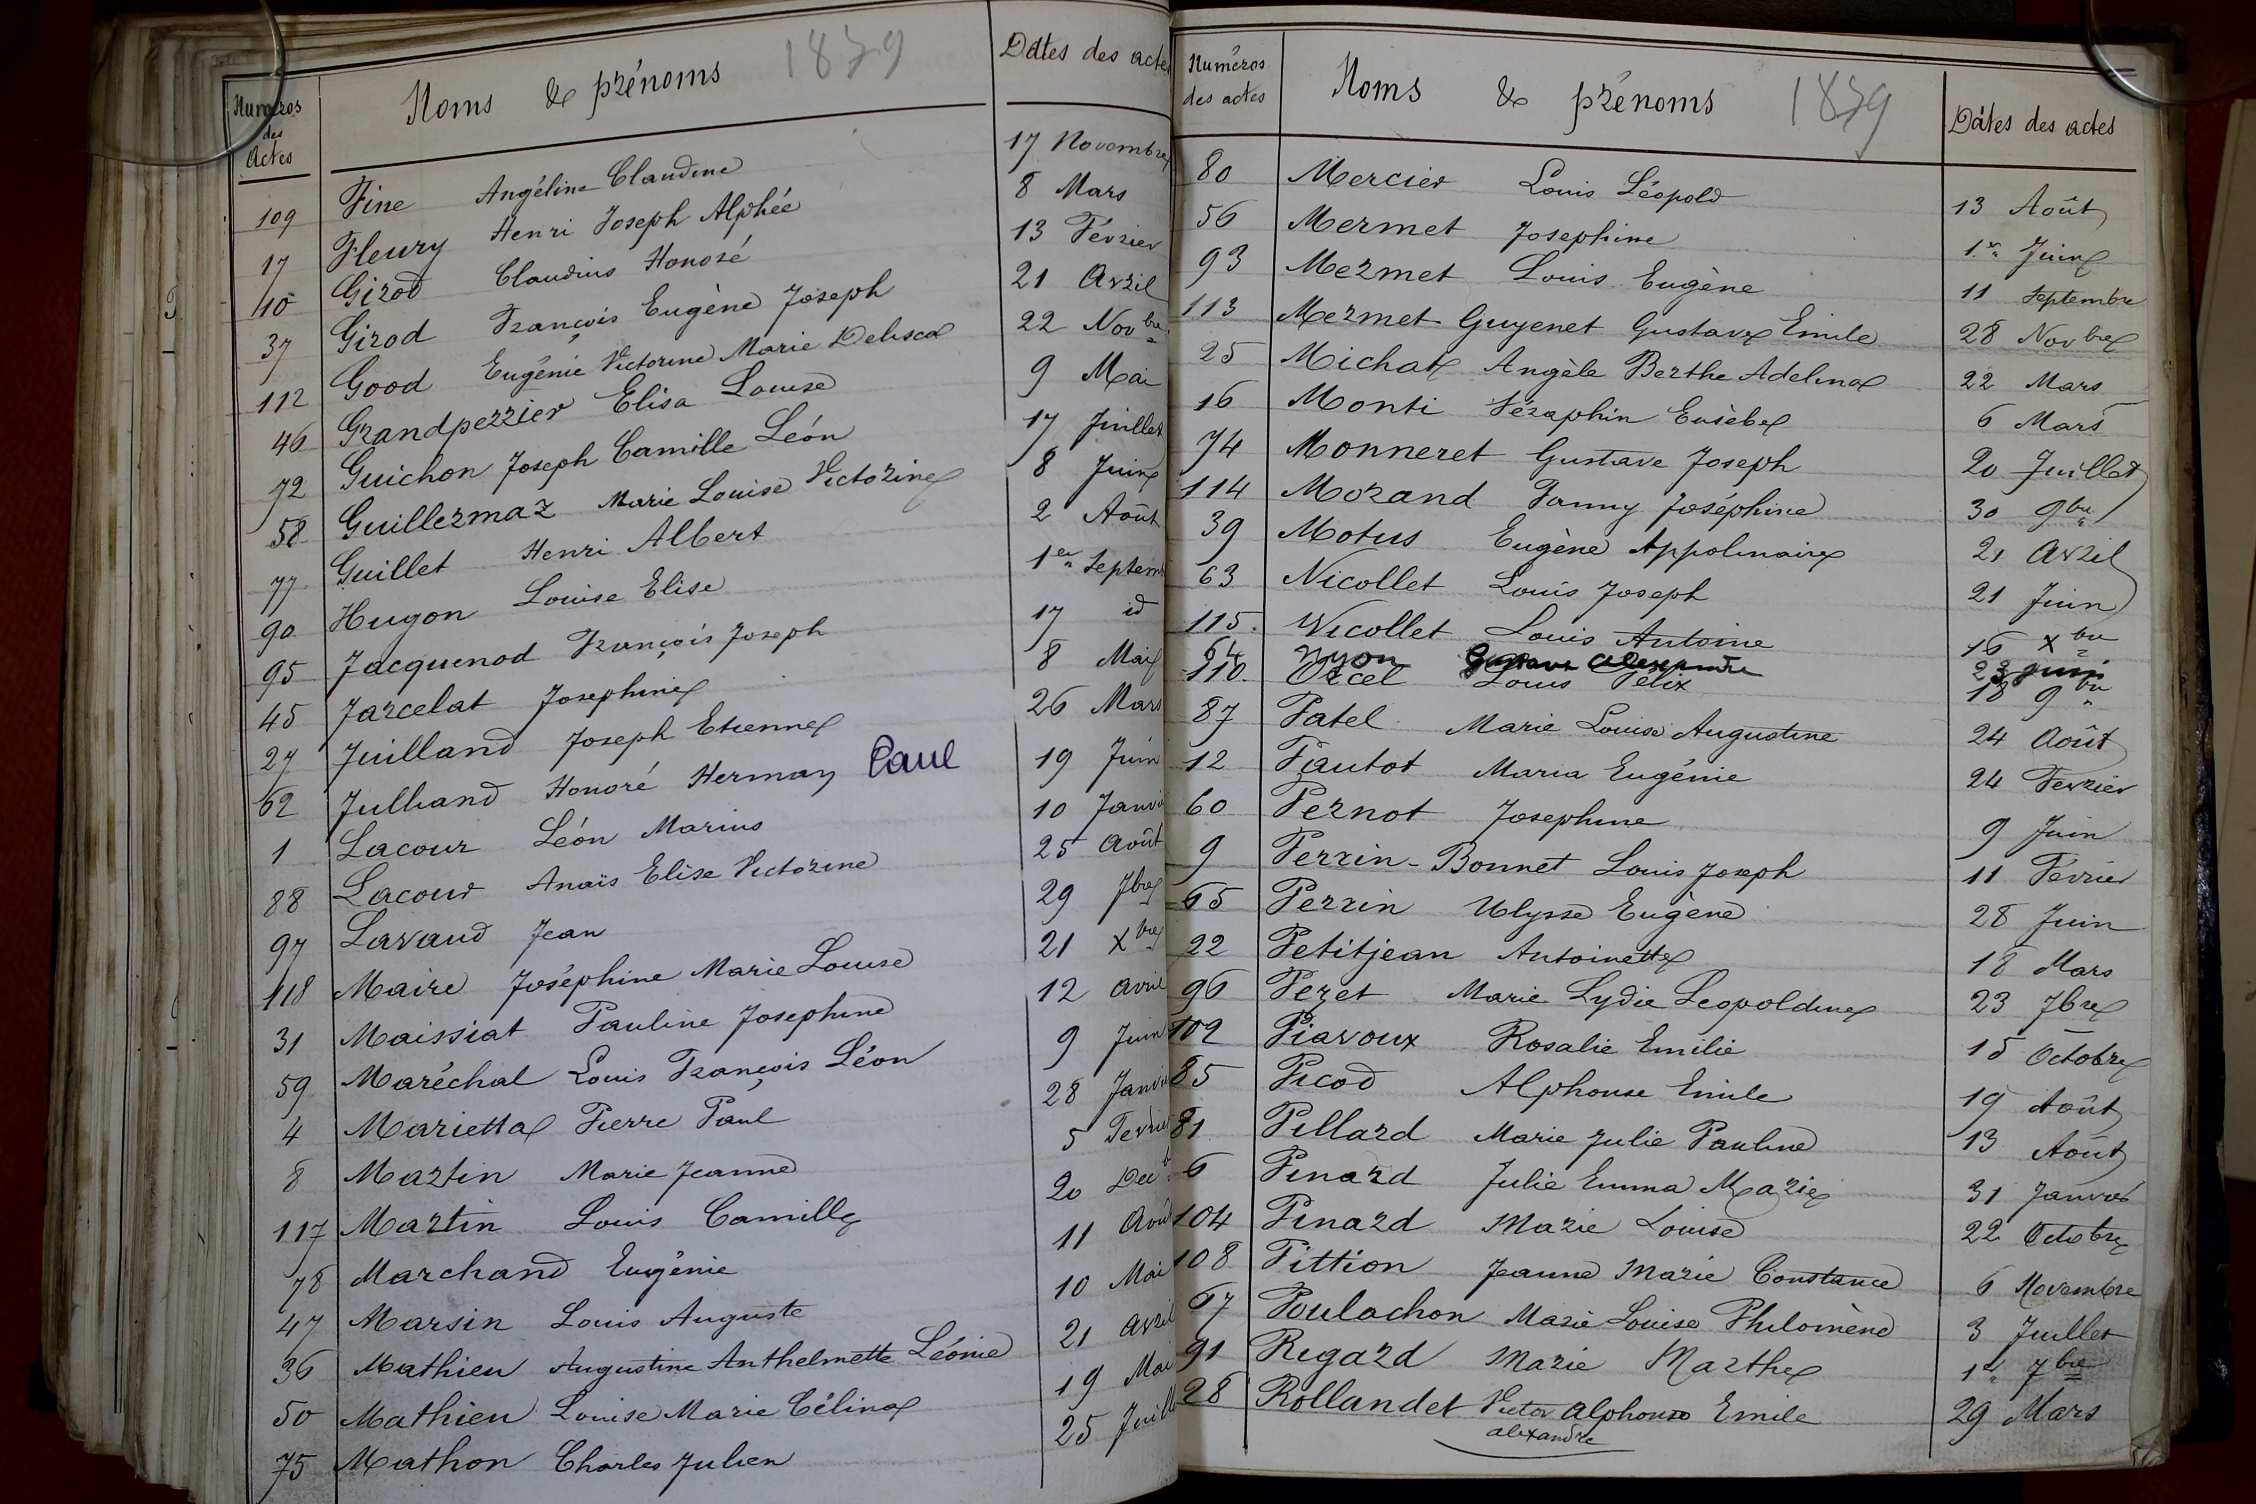 Numéros des Actes Noms & prénoms 1879 Dates des actes
109 Fine Angéline Claudine 17 Novembre
17 Fleury Henri Joseph Alphée 8 Mars
10 Girod Claudius Honoré 13 Février
37 Girod François Eugène Joseph 21 Avril
112 Good Eugénie Victorine Marie 22 Novbre
46 Grandperrier Elisa Louise 9 Mai
72 Guichon Joseph Camille Léon 17 Juillet
58 Guillermaz Marie Louise Victorine 8 Juin
77 Guillet Henri Albert 2 Août
90 Hugon Louise Elise 1er Septem
95 Jacquenod François Joseph 17 id
45 Jarcelat Josephine 8 Mai
27 Juilland Joseph Etienne 26 Mars
62 Julliand Honoré Herman Paul 19 Juin
1 Lacour Léon Marius 10 Janvi
88 Lacour Anaïs Elise Victorine 25 Août
97 Lavaud Jean 29 7bre
118 Maire Joséphine Marie Louise 21 Xbre
31 Maissiat Pauline Josephine 12 Avril
59 Maréchal Louis François Léon 9 Juin
4 Marietta Pierre Paul 28 Janvi
8 Martin Marie Jeanne 5 Fevrier
117 Martin Louis Camille 20 Decb
78 Marchand Eugénie 11 Août
47 Marsin Louis Auguste 10 Mai
36 Mathieu Augustine Anthelmette Léonie 21 Avril
50 Mathieu Louise Marie Célina 19 Mai
75 Mathon Charles Julien 25 Juill
Numéros des actes Noms & prénoms 1879 Dâtes des actes
80 Mercier Louis Léopold 13 Août
56 Mermet Josephine 1er Juin
93 Mermet Louis Eugène 11 Septembre
113 Mermet Guyenet Gustave Emile 28 Novbre
25 Michat Angèle Berthe Adelina 22 Mars
16 Monti Séraphin Eusèbe 6 Mars
74 Monneret Gustave Joseph 20 Juillet
114 Morand Fanny Joséphine 30 9bre
39 Motus Eugène Appolinaire 21 Avril
63 Nicollet Louis Joseph 21 Juin
115. Nicollet Louis Antoine 16 Xbre
64 Nyon Gustave Alexandre 23 juin
110. Orcel Louis Félix 18 9bre
87 Patel Marie Louise Augustine 24 Août
12 Pautot Maria Eugénie 24 Fevrier
60 Pernot Josephine 9 Juin
9 Perrin-Bonnet Louis Joseph 11 Février
65 Perrin Ulysse Eugène 28 Juin
22 Petitjean Antoinette 18 Mars
96 Pezet Marie Lydie Leopoldine 23 7bre
102 Piavoux Rosalie Emilie 15 Octobre
85 Picod Alphonse Emile 19 Août
81 Pillard Marie Julie Pauline 13 Août
6 Pinard Julie Emma Marie 31 Janvier
104 Pinard Marie Louise 22 Octobre
108 Pittion Jeanne Marie Constance 6 Novembre
67 Poulachon Marie Louise Philomène 3 Juillet
91 Regard Marie Marthe 1er 7bre
28 Rollandet Victor Alphonse Emile 29 Mars
alexandre